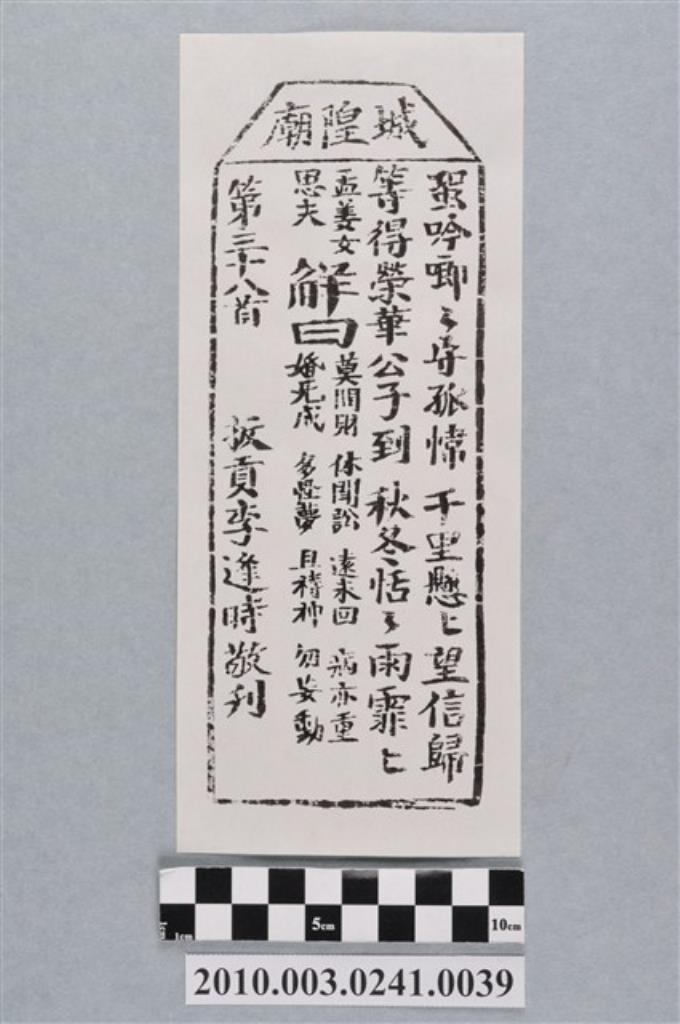 城隍廟
蛩吟唧〻守孤幃 千里懸〻望信歸
等得榮華公子到 秋冬恬〻雨霏〻
孟姜女
思夫
解曰
莫問財 休聞訟 遠未回 病亦重
婚无成 多怪夢 且禱神 勿妄動
第三十八首 拔貢李逢時敬刊
1cm 5cm 10cm
2010.003.0241.0039